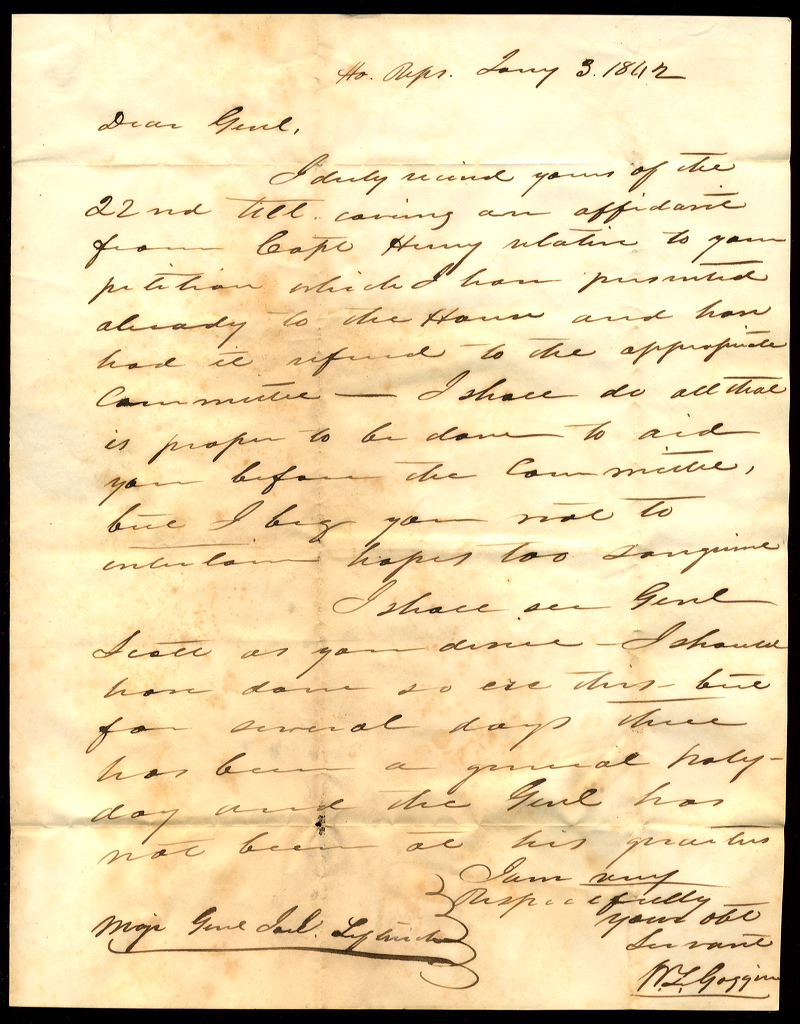 Ho. Reps. Jany 3. 1842
Dear Genl,
I duly received yours of the
22nd ult. covering an affidavit
from Capt Henry relative to your
petition which I have presented
already to the House and have
had it referred to the appropriate
Committee — I shall do all that
is proper to be done to aid
you before the Committee,
but I beg you not to
entertain hopes too sanguine
I shall see Genl
Scott as you desire - I should
have done so ere this - but
for several days there
has been a general holy-
day and the Genl has
not been at his quarters
I am very
Respectfully
your obt
Servant
W. L. Goggin
Majr Genl Joel